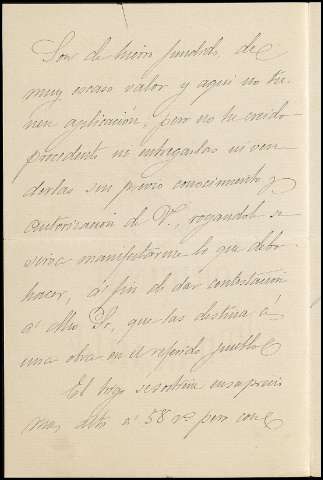 Son de hierro fundido, de
muy escaso valor y aqui no tie-
nen aplicación, pero no he creido
procedente ni entregarlas ni ven-
derlas sin previo conocimiento y
autorizacion de V., rogandole se
sirva manifestarme lo que debo
hacer, á fin de dar contestación
á dho Sr, que las destina á
una obra en el referido pueblo
El trigo se sostiene en su precio
mas alto á 58 rs pero con